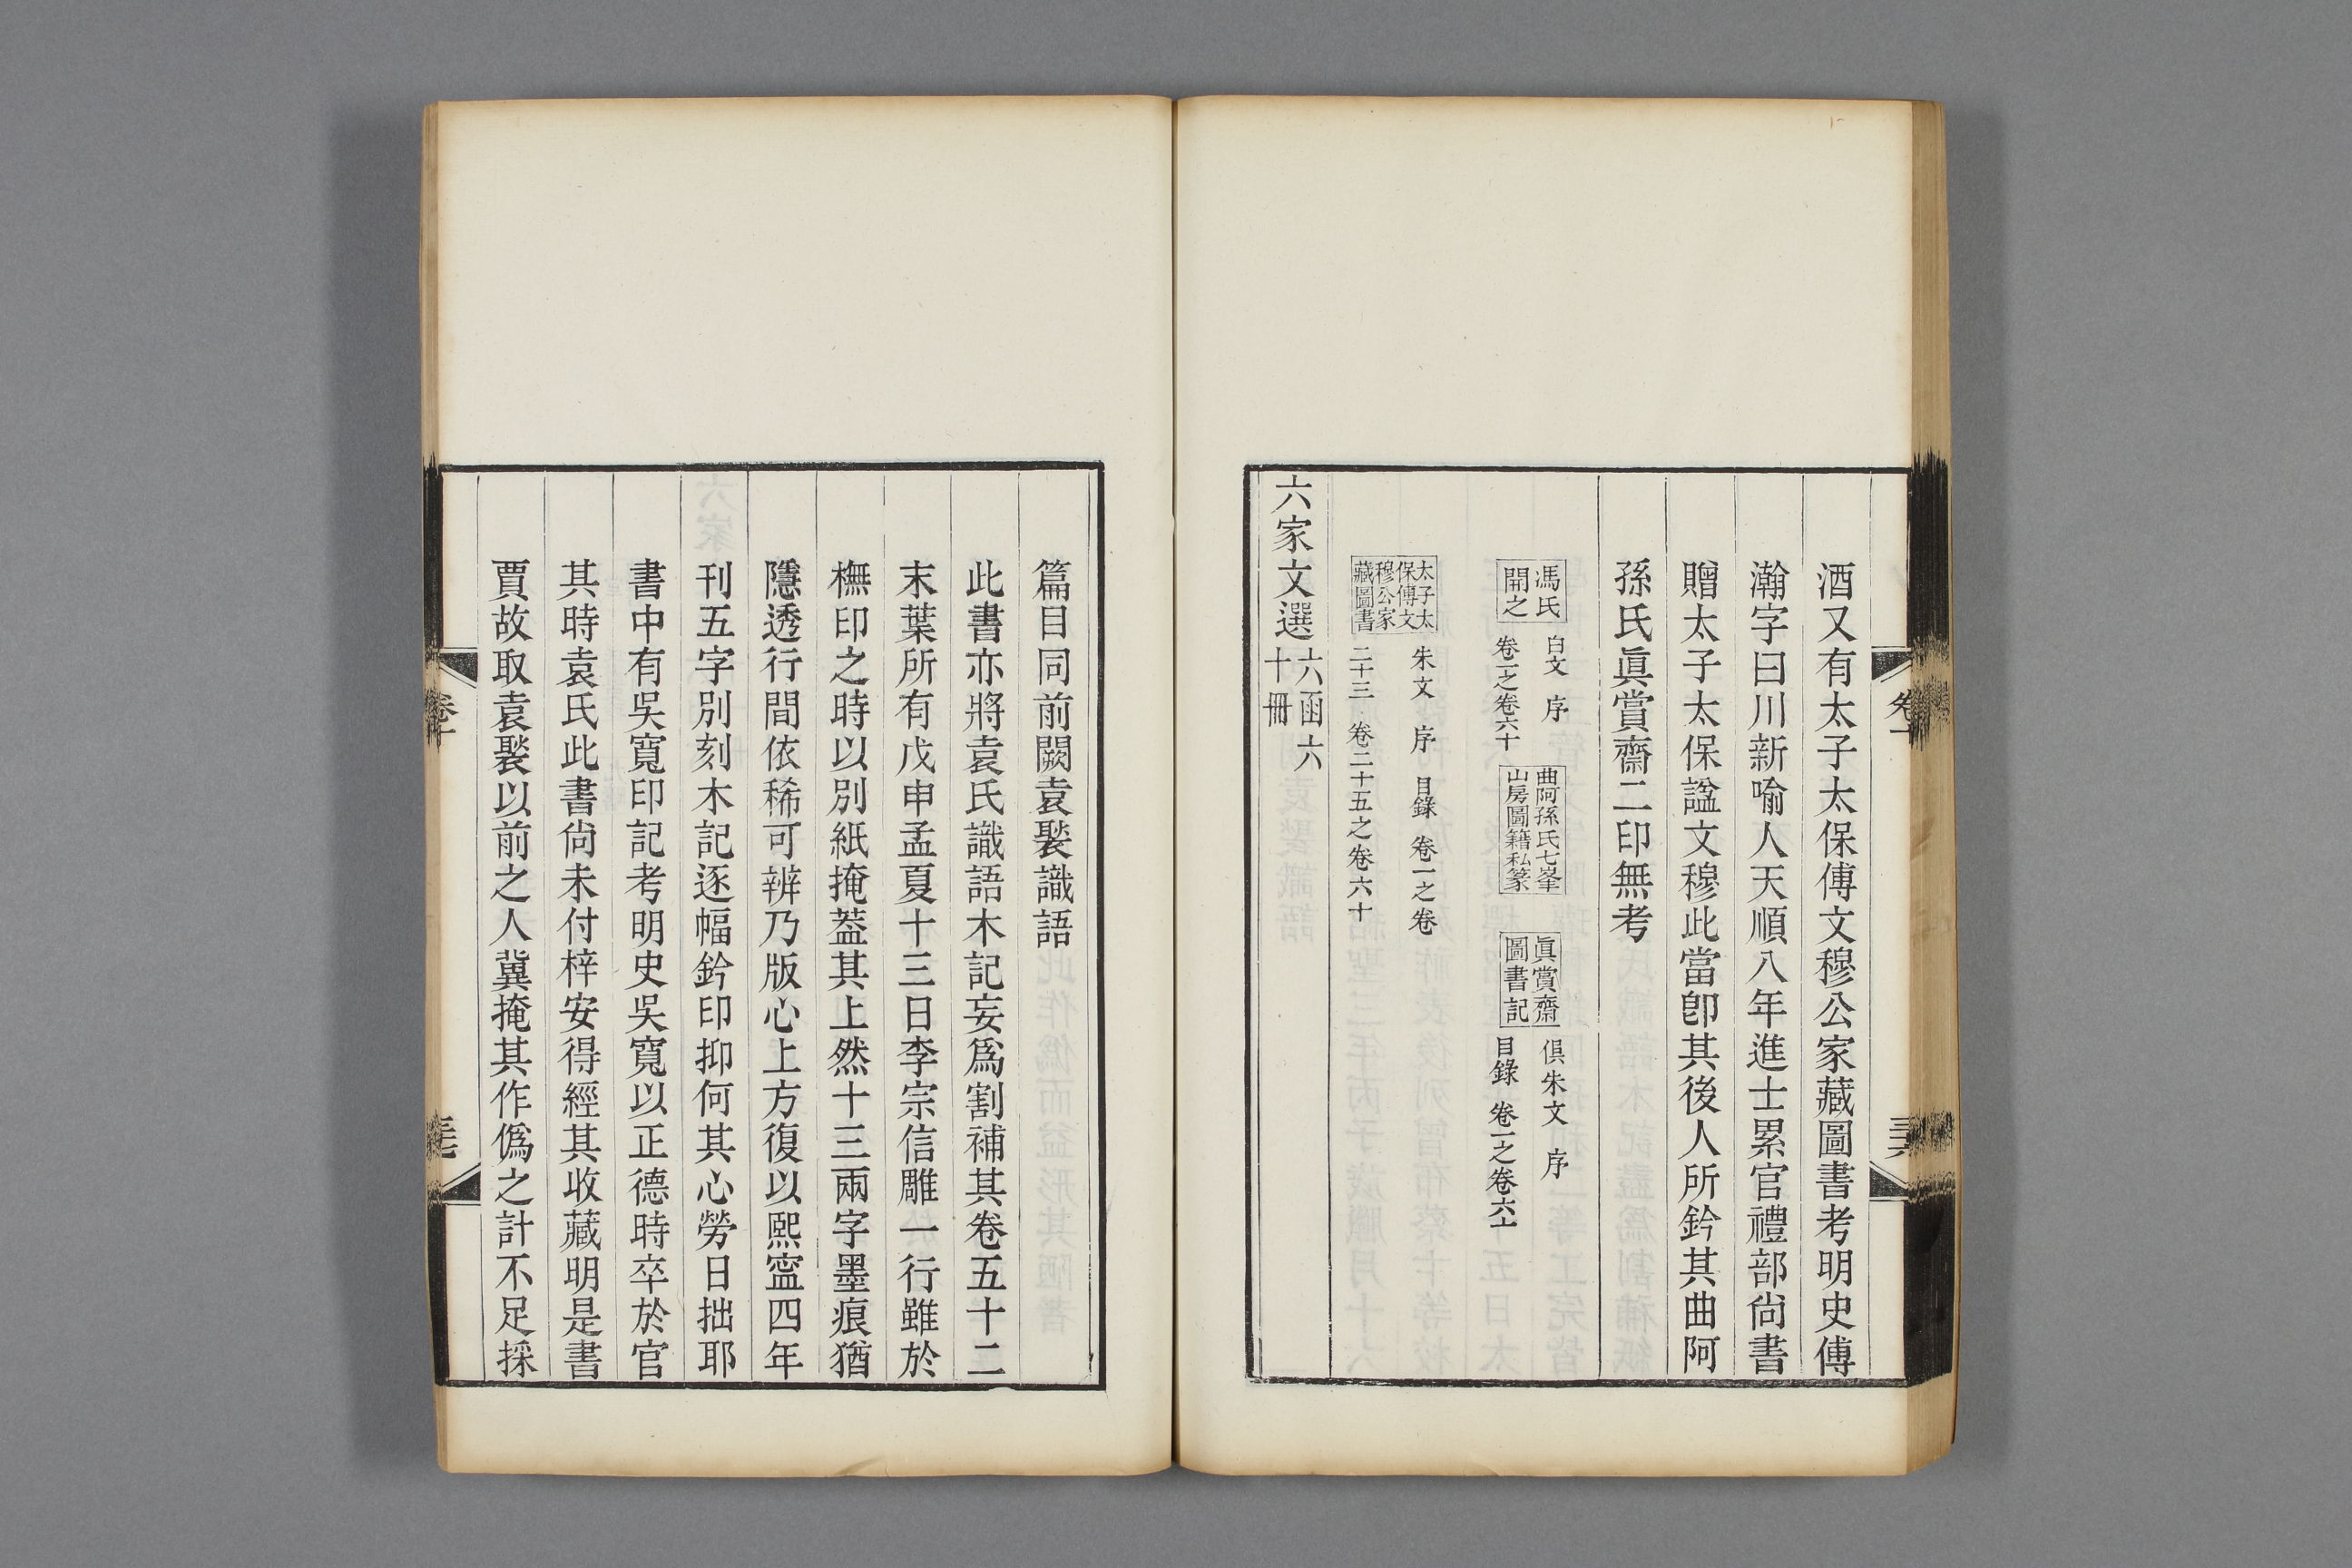 酒又有太子太保傅文穆公家藏圖書考明史傅
瀚字曰川新喻人天順八年進士累官禮部尚書
贈太子太保諡文穆此當卽其後人所鈐其曲阿
孫氏眞賞齋二印無考
馮氏
開之
白文 序
卷一之卷六十
曲阿孫氏七峯
山房圖籍私篆
眞賞齋
圖書記
俱朱文 序
目錄 卷一之卷六十
太子太
保傅文
穆公家
藏圖書
朱文 序 目錄 卷一之卷
二十三 卷二十五之卷六十
六家文選
六函六
十冊
篇目同前闕袁褧識語
此書亦將袁氏識語木記妄爲割補其卷五十二
末葉所有戊申孟夏十三日李宗信雕一行雖於
橅印之時以別紙掩葢其上然十三兩字墨痕猶
隱透行間依稀可辨乃版心上方復以熙寍四年
刊五字別刻木記逐幅鈐印抑何其心勞日拙耶
書中有吳寬印記考明史吳寬以正德時卒於官
其時袁氏此書尙未付梓安得經其收藏明是書
賈故取袁褧以前之人冀掩其作僞之計不足採